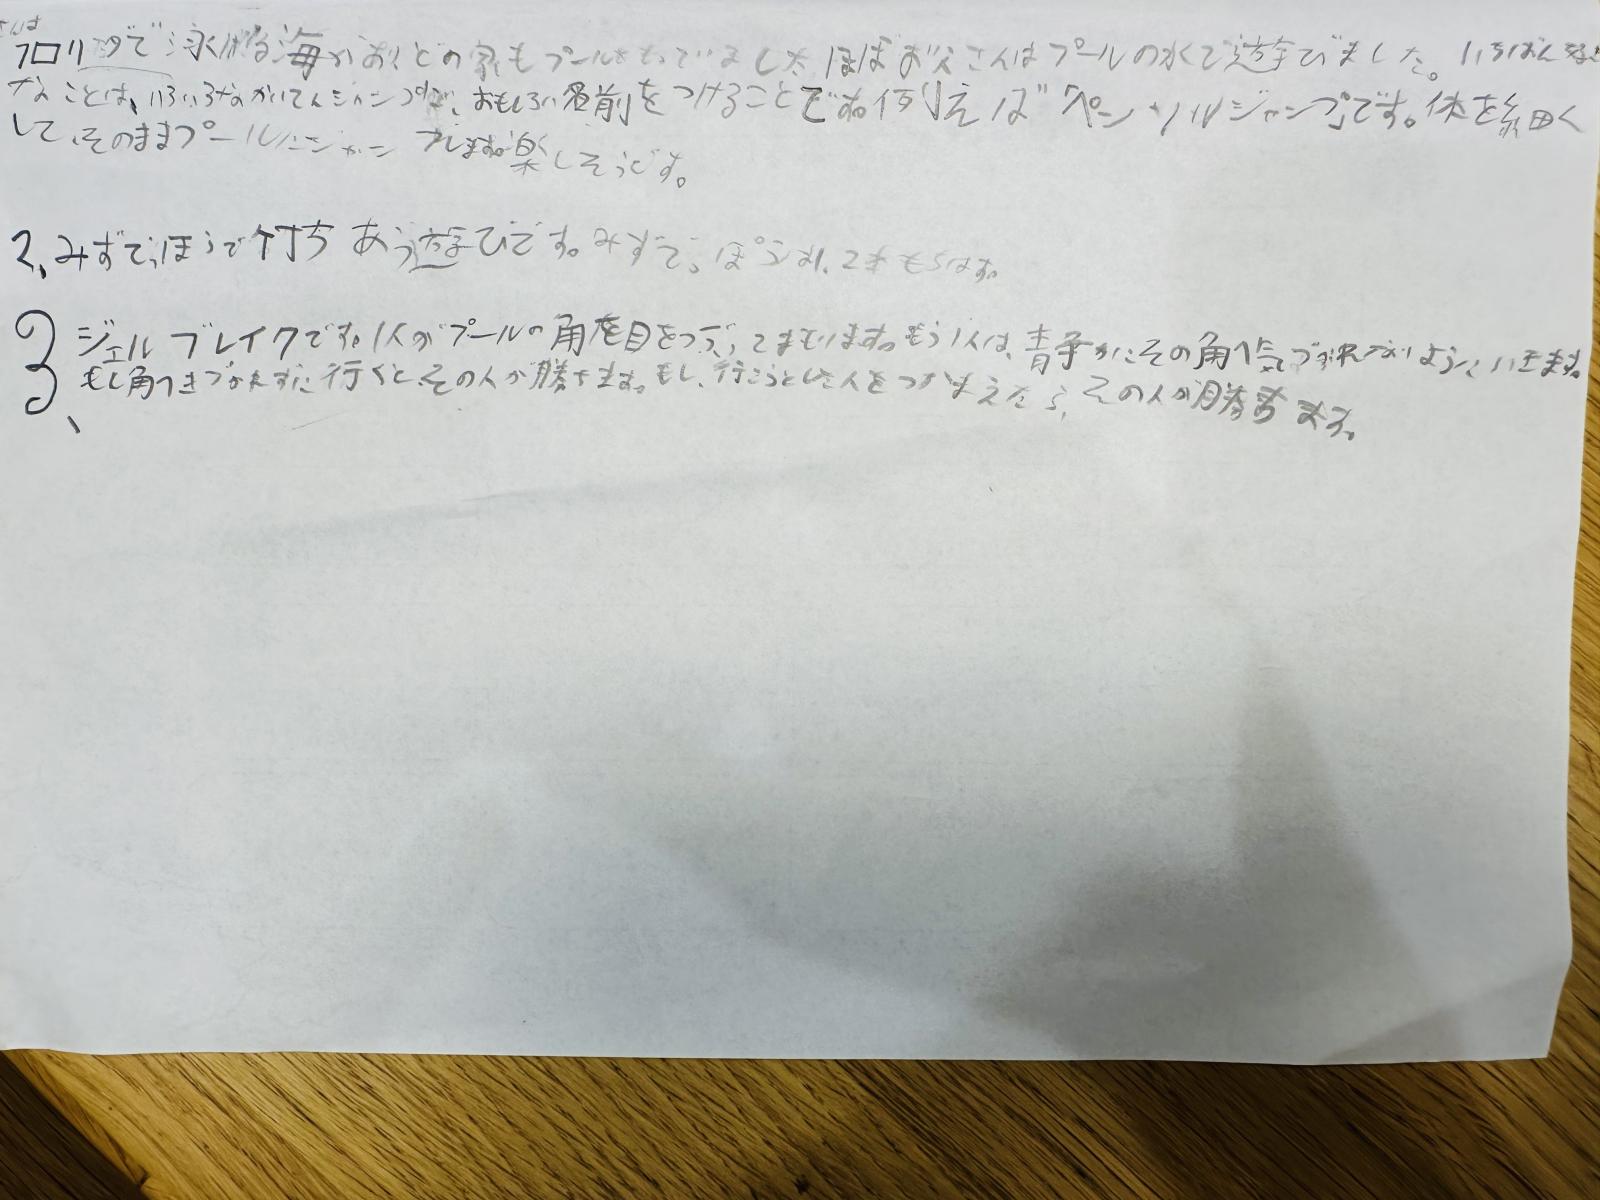 さんは
フロリダで泳げる海がありどの家もプールをもっていました。ほぼお父さんはプールの水で遊びました。いちばん好き
なことは、いろいろなかいてんジャンプで、おもしろい名前をつけることです。例えば"ペンシルジャンプ"です。体を細く
して、そのままプールにジャンプします。楽しそうです。
2、みずでっぽうで打ちあう遊びです。みずでっぽう
3、ジェルブレイクです。1人がプールの角を目をつぶってまもります。もう1人は、静かにその角へ気づかれないようにいきます。
もし角へきづかれずに行くと、その人が勝ちます。もし、行こうとした人をつかまえたら、その人が勝ちます。